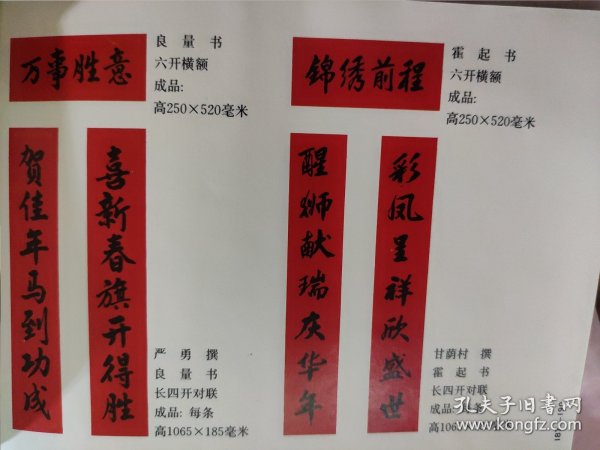 万事胜意
良量书
六开横额
成品:
高250×520毫米
喜新春旗开得胜
贺佳年马到功成
严勇 撰
良量 书
长四开对联
成品: 每条
高1065×185毫米
锦绣前程
霍起书
六开横额
成品:
高250×520毫米
彩凤呈祥欣盛世
醒狮献瑞庆华年
甘荫村 撰
霍起 书
长四开对联
成品:
高106
毫米
孔夫子旧书网
www.kongfz.com